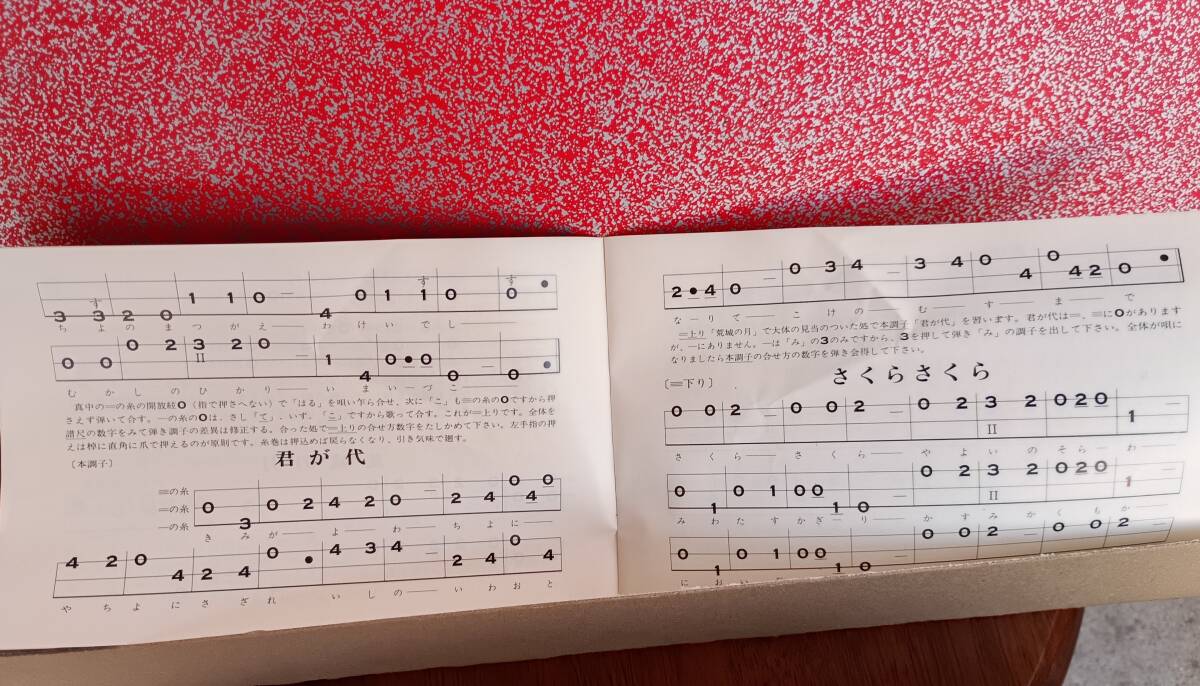 す す す
3 3 2 0 1 1 0 — 4 0 1 1 0 0 ●
ちよのまつがえ——わけいでし——
0 0 0 2 3 2 0 — 1 4 0 ● 0 0 0
II
むかしのひかり——いまい—づこ——
真中の二の糸の開放絃0(指で押さへない)で「はる」を唄い乍ら合せ、次に「こ」も三の糸の0ですから押
さえず弾いて合す。一の糸の0は、さし「て」、いす。「こ」ですから歌って合す。これが二上りです。全体を
譜尺の数字をみて弾き調子の差異は修正する。合った処で二上りの合せ方数字をたしかめて下さい。左手指の押
えは棹に直角に爪で押えるのが原則です。糸巻は押込めば戻らなくなり、引き気味で廻す。
〔本調子〕 君が代
三の糸
二の糸
一の糸
0 3 0 2 4 2 0 — 2 4 0 4 0
きみが——よ——わ——ちよに——
4 2 0 4 2 4 0 ● 4 3 4 — 2 4 0 4
やちよにさざれ いしの——いわおと
2 ● 4 0 — 0 3 4 — 3 4 0 4 0 4 2 0 ●
な—りて——こけの——む——す——ま——で
二上り「荒城の月」で大体の見当のついた処で本調子「君が代」を習います。君が代は二、三に0があります
が、一にありません。一は「み」の3のみですから、3を押して弾き「み」の調子を出して下さい。全体が唄に
なりましたら本調子の合せ方の数字を弾き会得して下さい。
〔二下り〕 さくらさくら
0 0 2 — 0 0 2 — 0 2 3 2 0 2 0 1 —
II
さくら——さくら——やよいのそら—わ——
0 1 0 1 0 0 1 0 — 0 2 3 2 0 2 0 1
II
みわたすかぎ—り——かすみかくもか——
0 1 0 1 0 0 1 0 — 0 0 2 — 0 0 2 —
におい